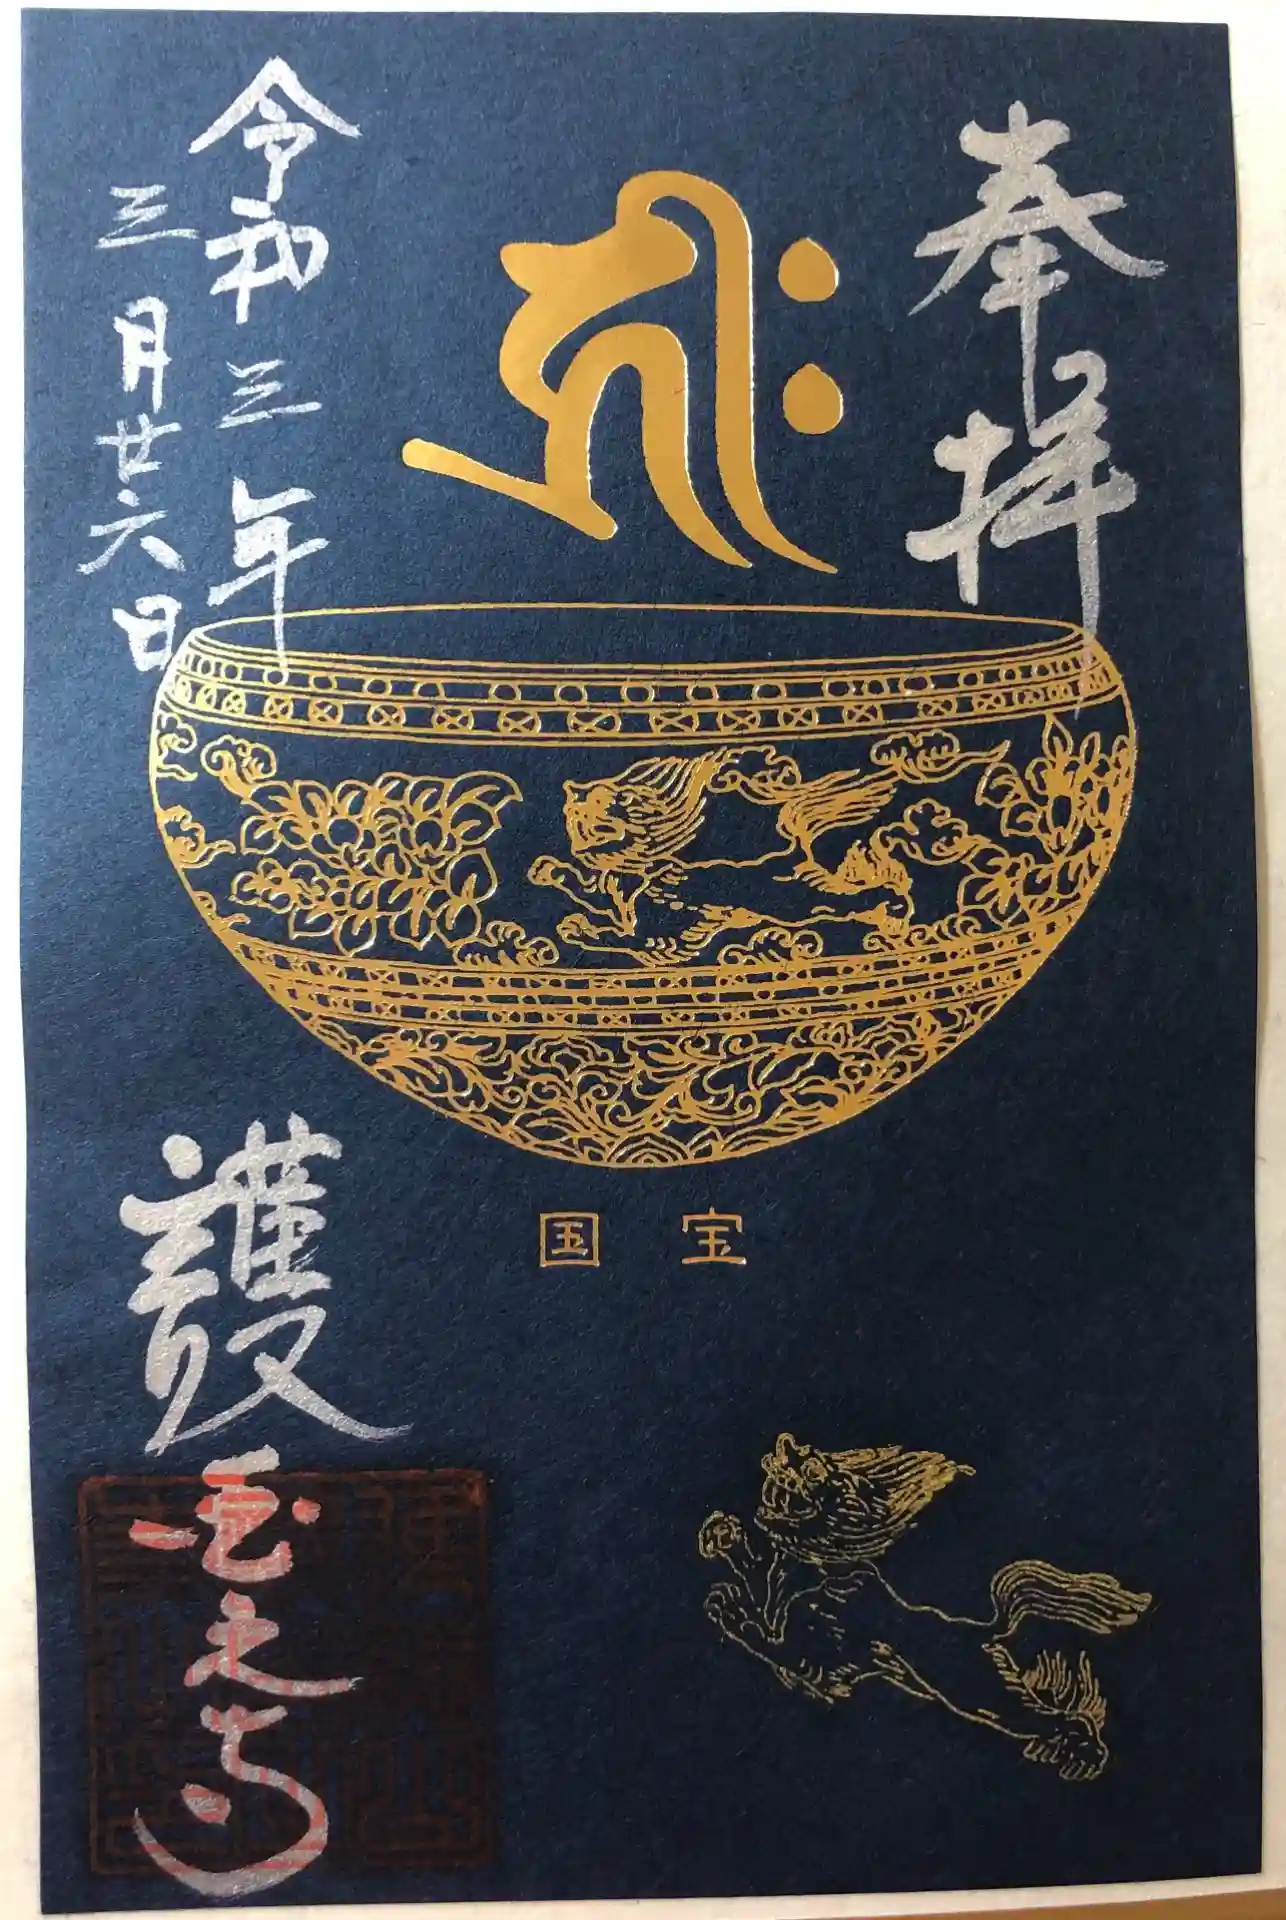 奉拝
ह्रीः
国宝
令和三年
三月廿六日
護国之寺